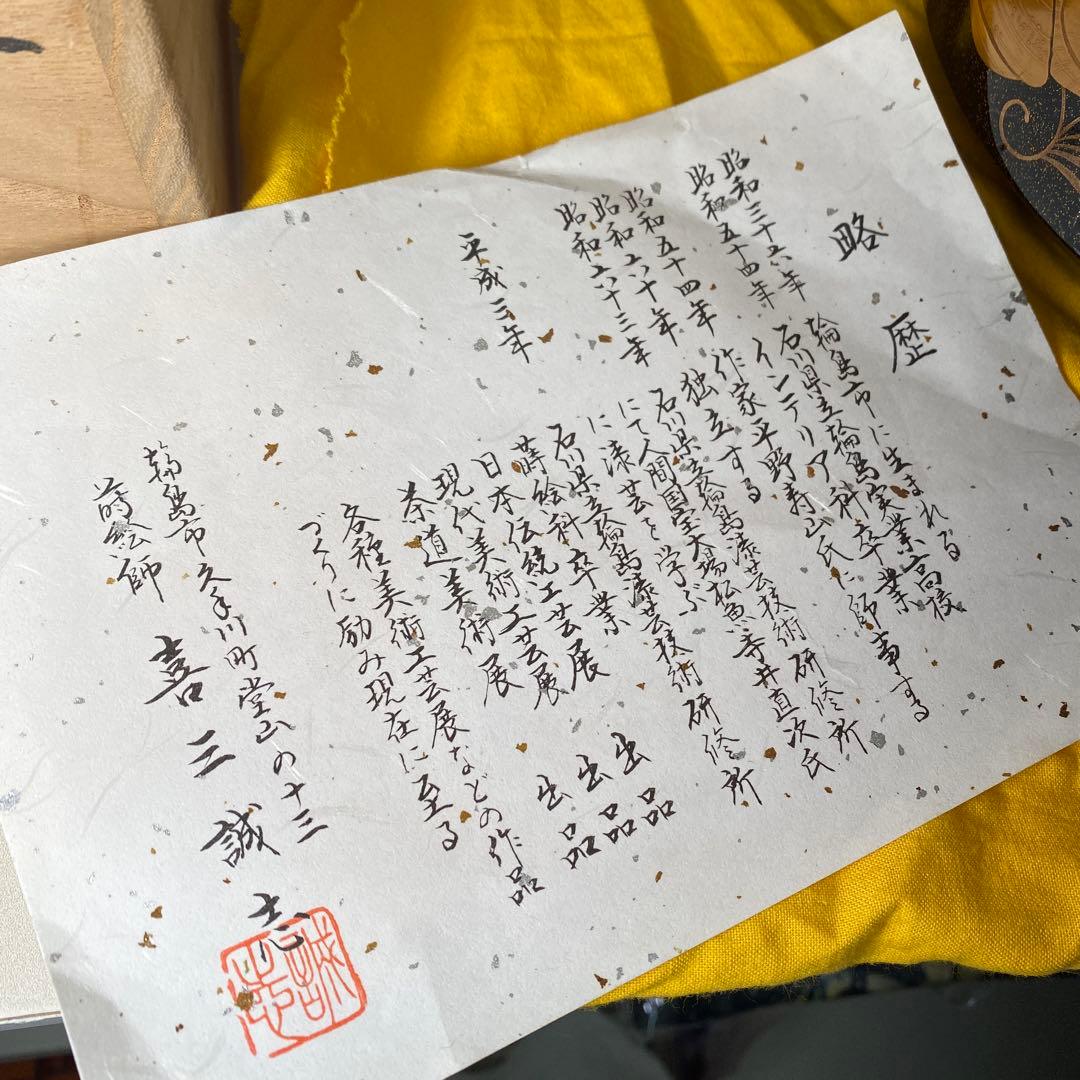 略歴
昭和三十六年 輪島市に生まれる
昭和五十四年 石川県立輪島実業高校
インテリア科卒業
昭和五十四年 作家平野寿山氏に師事する
昭和六十年 独立する
昭和六十年 石川県立輪島漆芸技術研修所
にて人間国宝大場松魚、寺井直次氏
に漆芸を学ぶ
昭和六十三年 石川県立輪島漆芸技術研修所
蒔絵科卒業
平成三年 日本伝統工芸展 出品
現代美術工芸展 出品
茶道美術展 出品
各種美術工芸展などの作品
づくりに励み現在に至る
輪島市久手川町堂山の十三
蒔絵師 喜三誠志
誠志